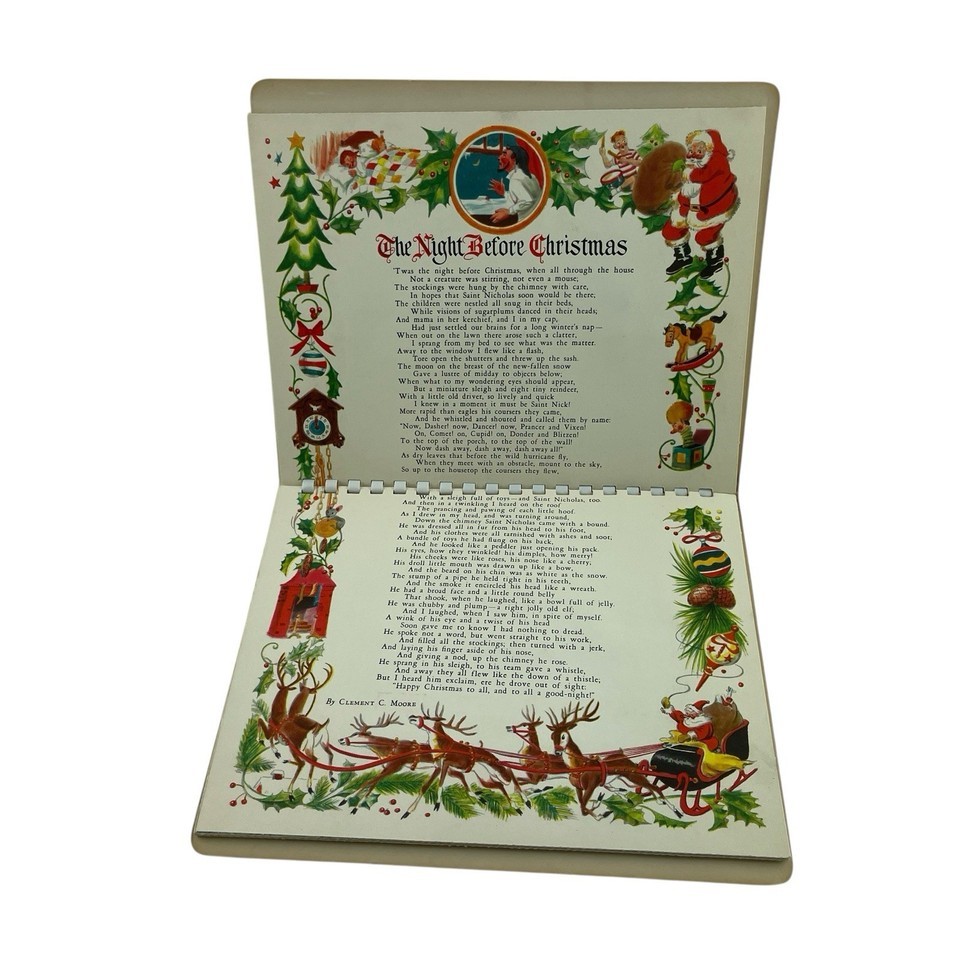 The Night Before Christmas
'Twas the night before Christmas, when all through the house
Not a creature was stirring, not even a mouse;
The stockings were hung by the chimney with care,
In hopes that Saint Nicholas soon would be there;
The children were nestled all snug in their beds,
While visions of sugarplums danced in their heads;
And mama in her kerchief, and I in my cap,
Had just settled our brains for a long winter's nap—
When out on the lawn there arose such a clatter,
I sprang from my bed to see what was the matter.
Away to the window I flew like a flash,
Tore open the shutters and threw up the sash.
The moon on the breast of the new-fallen snow
Gave a lustre of midday to objects below;
When what to my wondering eyes should appear,
But a miniature sleigh and eight tiny reindeer,
With a little old driver, so lively and quick
I knew in a moment it must be Saint Nick!
More rapid than eagles his coursers they came,
And he whistled and shouted and called them by name:
"Now, Dasher! now, Dancer! now, Prancer and Vixen!
On, Comet! on, Cupid! on, Donder and Blitzen!
To the top of the porch, to the top of the wall!
Now dash away, dash away, dash away all!"
As dry leaves that before the wild hurricane fly,
When they meet with an obstacle, mount to the sky,
So up to the housetop the coursers they flew,
With a sleigh full of toys—and Saint Nicholas, too.
And then in a twinkling I heard on the roof
The prancing and pawing of each little hoof.
As I drew in my head, and was turning around,
Down the chimney Saint Nicholas came with a bound.
He was dressed all in fur from his head to his foot,
And his clothes were all tarnished with ashes and soot;
A bundle of toys he had flung on his back,
And he looked like a peddler just opening his pack.
His eyes, how they twinkled! his dimples, how merry!
His cheeks were like roses, his nose like a cherry;
His droll little mouth was drawn up like a bow,
And the beard on his chin was as white as the snow.
The stump of a pipe he held tight in his teeth,
And the smoke it encircled his head like a wreath.
He had a broad face and a little round belly
That shook, when he laughed, like a bowl full of jelly.
He was chubby and plump—a right jolly old elf;
And I laughed, when I saw him, in spite of myself.
A wink of his eye and a twist of his head
Soon gave me to know I had nothing to dread.
He spoke not a word, but went straight to his work,
And filled all the stockings; then turned with a jerk,
And laying his finger aside of his nose,
And giving a nod, up the chimney he rose.
He sprang in his sleigh, to his team gave a whistle,
And away they all flew like the down of a thistle;
But I heard him exclaim, ere he drove out of sight:
"Happy Christmas to all, and to all a good-night!"
By CLEMENT C. MOORE